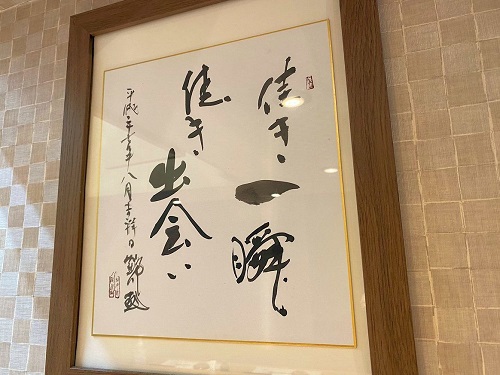 佳き一瞬
佳き出会い
平成二十五年八月吉祥日